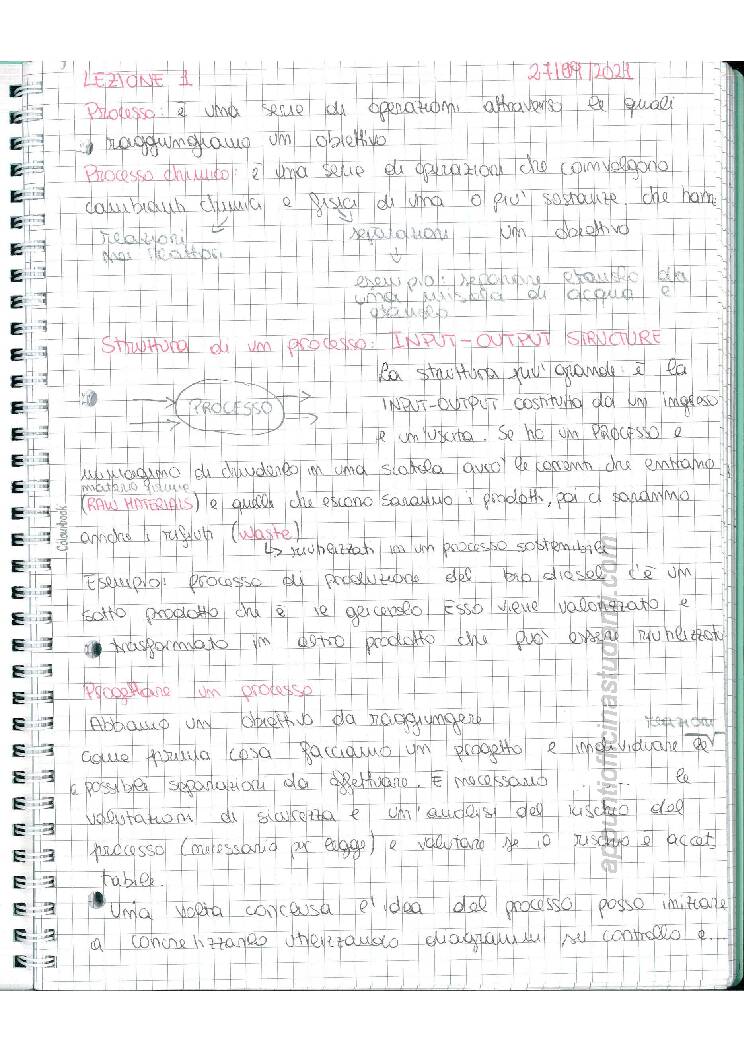 LEZIONE 1
27/09/2021
Processo: è una serie di operazioni attraverso le quali
raggiungiamo un obiettivo
Processo chimico: è una serie di operazioni che coinvolgono
cambiamenti chimici e fisici di una o più sostanze che hanno
reazioni
nei reattori
separazioni
un obiettivo
esempio: separare etanolo da
una miscela di acqua e
etanolo
Struttura di un processo: INPUT-OUTPUT STRUCTURE
La struttura più grande è la
PROCESSO
INPUT-OUTPUT costituita da un ingresso
e un'uscita. Se ho un PROCESSO e
immagino di chiuderlo in una scatola avrò le correnti che entrano
materie prime
(RAW MATERIALS) e quelle che escono saranno i prodotti, poi ci saranno
anche i rifiuti (waste)
riutilizzati in un processo sostenibile
Esempio: processo di produzione del bio diesel c'è un
sotto prodotto che è il glicerolo Esso viene valorizzato e
trasformato in altro prodotto che può essere riutilizzato
Progettare un processo
Abbiamo un obiettivo da raggiungere
reazioni
come prima cosa facciamo un progetto e individuare le
e possibili separazioni da effettuare. È necessario le
valutazioni di sicurezza e un'analisi del rischio del
processo (necessaria per legge) e valutare se il rischio è accet
tabile.
Una volta conclusa l'idea del processo posso iniziare
a concretizzarlo utilizzando diagrammi su controllo e
Colourbook
appuntiofficinastudenti.com